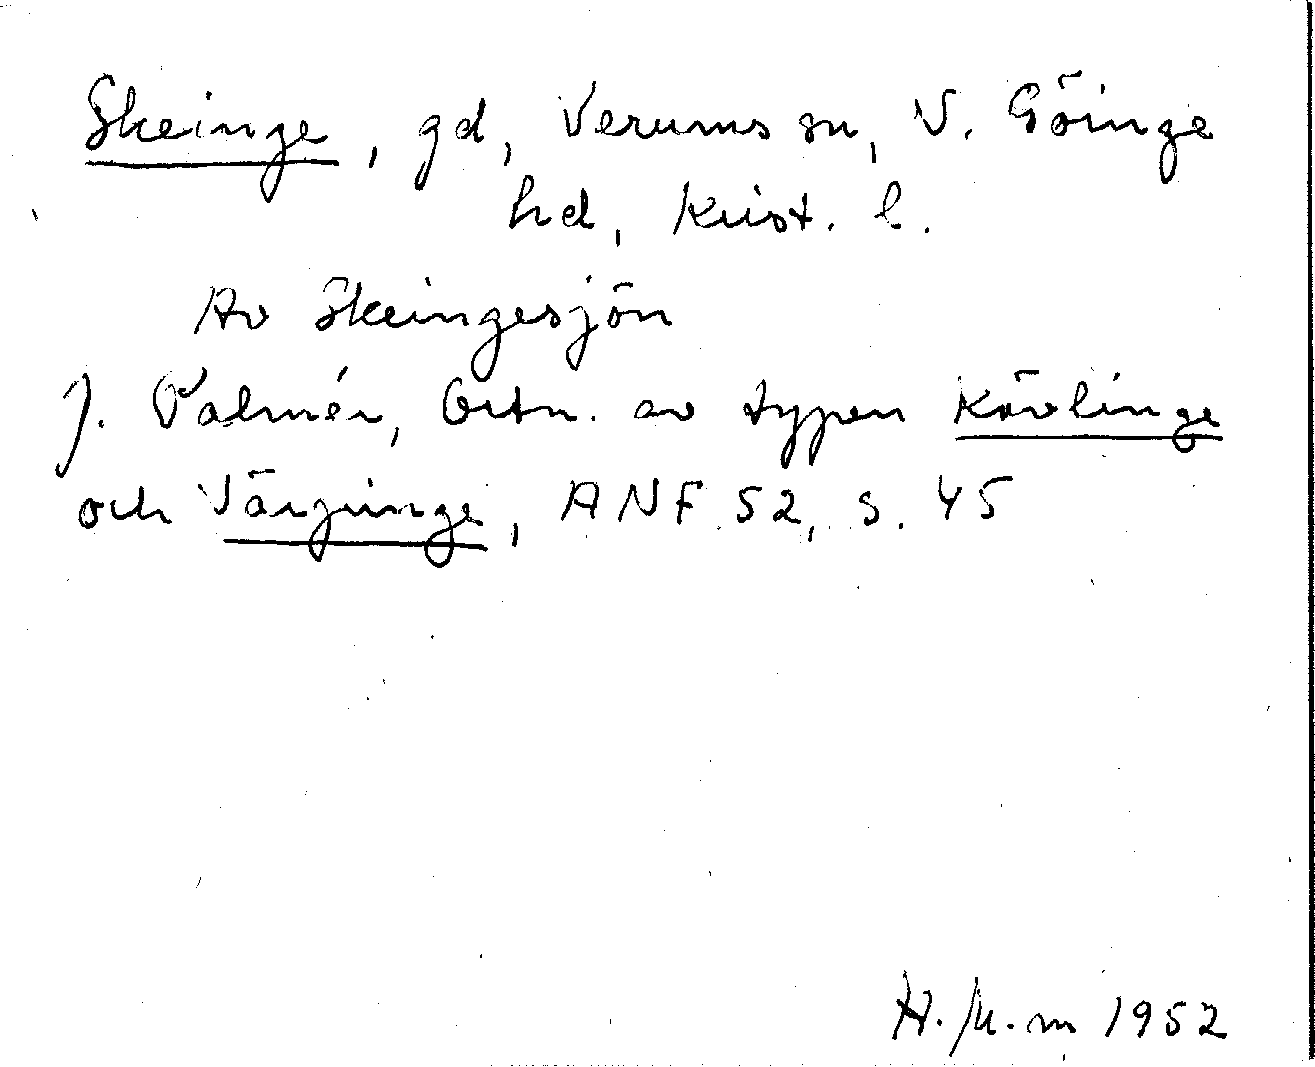 Skeinge, gd, Verums sn, V. Göinge
hd, Krist. l.
Av Skeingesjön
J. Palmér, Ortn. av typen Kävlinge
och Värpinge, ANF 52, s. 45
H. M-m 1952